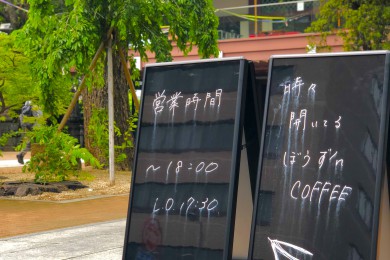 営業時間
〜18:00
L.O.17:30
時々
開いてる
ぼうず'n
COFFEE